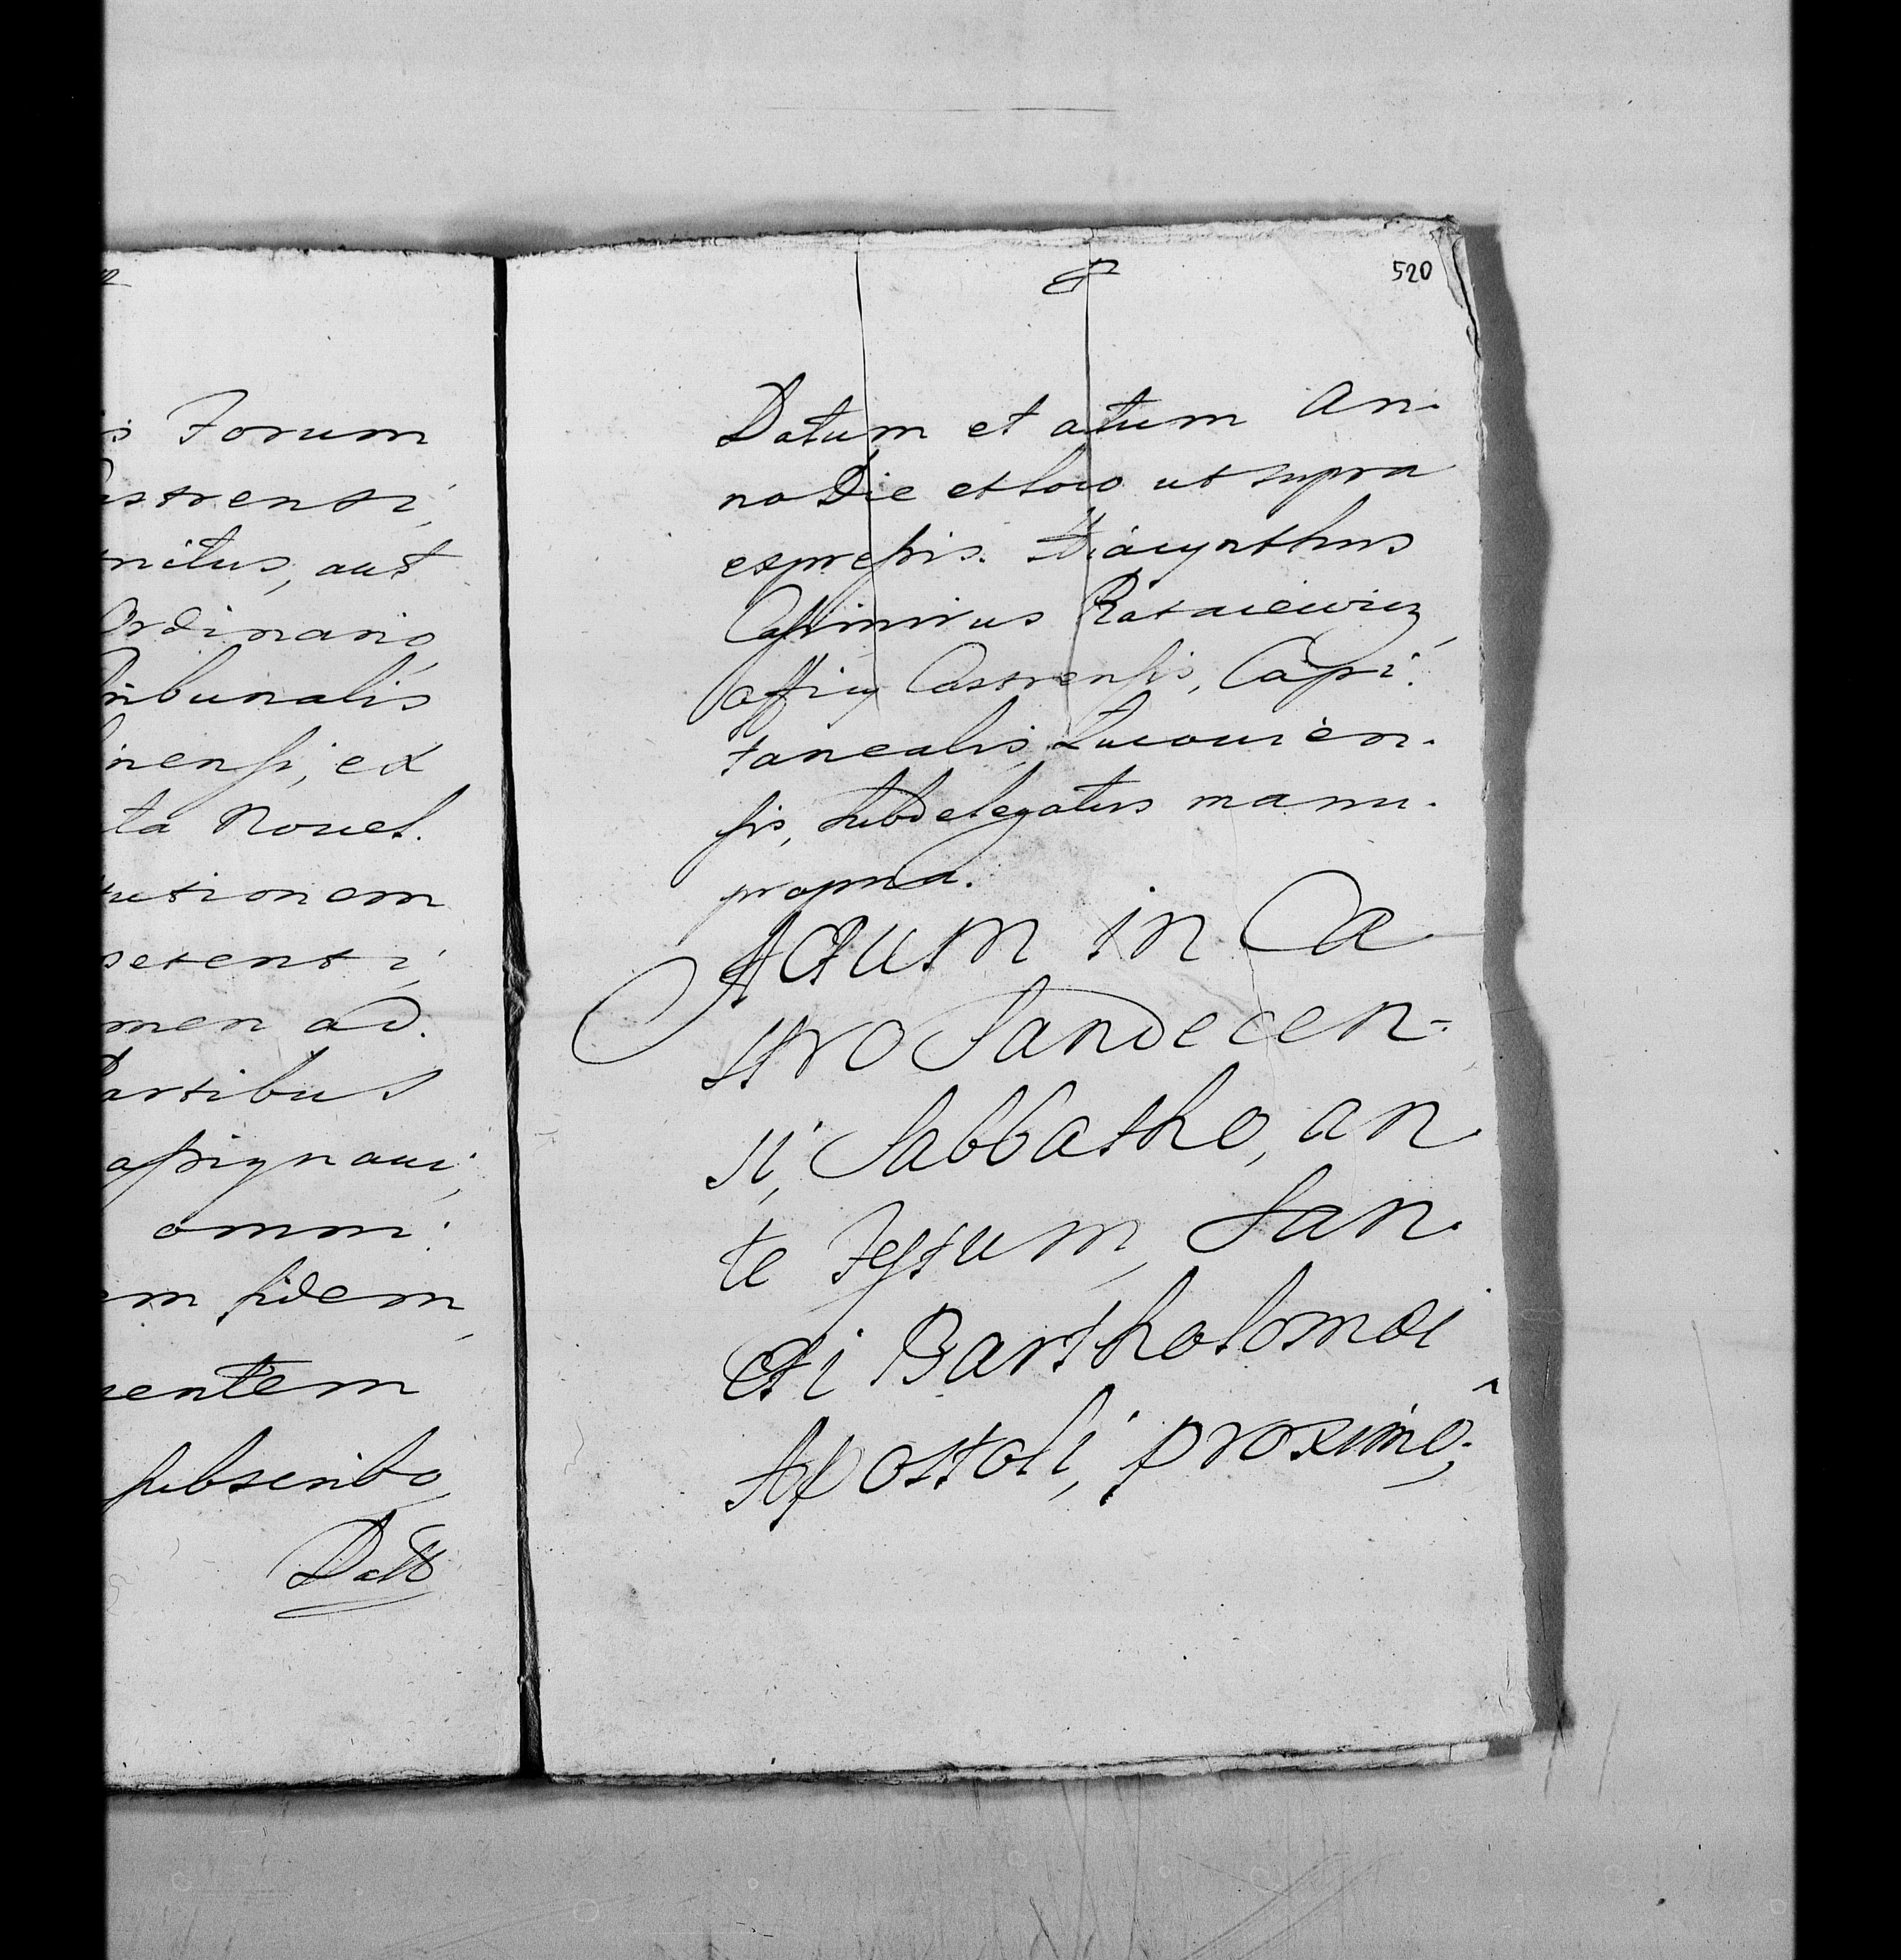 Forum
astrensi,
nitus, aut
Ordinario,
ribunalis
nensi, ex
ta Novel.
tutionem
petenti,
men ad.
Partibus
assignavi,
omni.
em fidem,
sentem
subscribo,
Datt
520
Datum et actum An.
no Die et loco ut supra
expressis. Hiacynthus
Casimirus Rataiewicz,
officy Castrensis, Capi.
tanealis, Lucovien.
sis, Subdelegatus manu.
propria.
Actum in Ca
stro Sandecen=
si, Sabbatho, an
te Festum, San.
cti Bartholomæi
Apostoli, proximô,